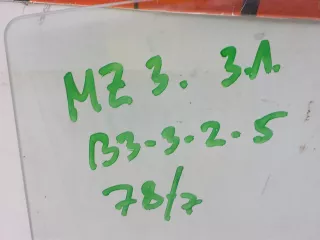 MZ 3. 3.Л.
В3-3-2-5
78/7